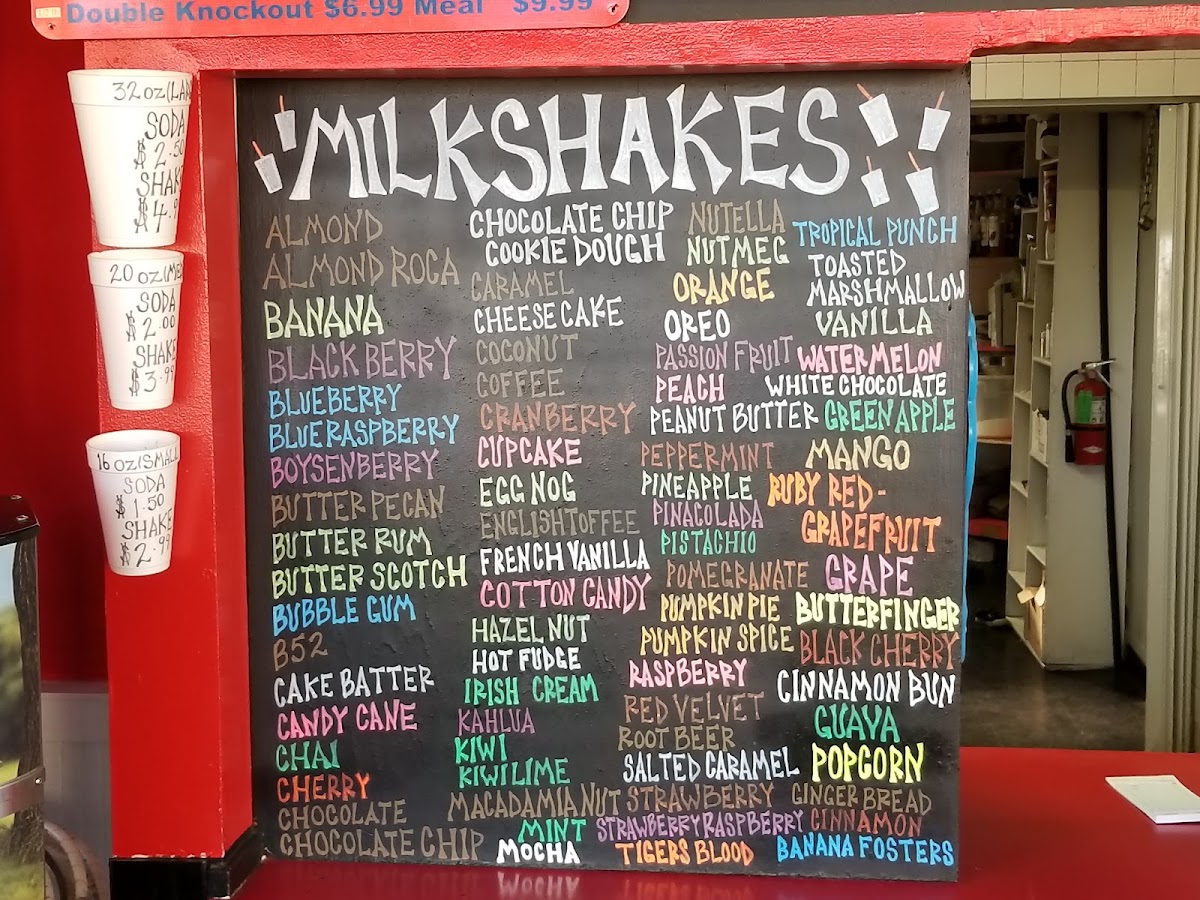 Double Knockout $6.99 Meal $9.99
32 oz (LA
SODA
$2.50
SHAKE
$4.9
20 oz (ME
SODA
$2.00
SHAKE
$3.99
16 oz (SMALL
SODA
$1.50
SHAKE
$2.99
MILKSHAKES
ALMOND
ALMOND ROCA
BANANA
BLACKBERRY
BLUEBERRY
BLUERASPBERRY
BOYSENBERRY
BUTTER PECAN
BUTTER RUM
BUTTER SCOTCH
BUBBLE GUM
B52
CAKE BATTER
CANDY CANE
CHAI
CHERRY
CHOCOLATE
CHOCOLATE CHIP
CHOCOLATE CHIP
COOKIE DOUGH
CARAMEL
CHEESECAKE
COCONUT
COFFEE
CRANBERRY
CUPCAKE
EGG NOG
ENGLISH TOFFEE
FRENCH VANILLA
COTTON CANDY
HAZELNUT
HOT FUDGE
IRISH CREAM
KAHLUA
KIWI
KIWI LIME
MACADAMIA NUT
MINT
MOCHA
NUTELLA
NUTMEG
ORANGE
OREO
PASSION FRUIT
PEACH
PEANUT BUTTER
PEPPERMINT
PINEAPPLE
PINACOLADA
PISTACHIO
POMEGRANATE
PUMPKIN PIE
PUMPKIN SPICE
RASPBERRY
RED VELVET
ROOT BEER
SALTED CARAMEL
STRAWBERRY
STRAWBERRY RASPBERRY
TIGERS BLOOD
TROPICAL PUNCH
TOASTED
MARSHMALLOW
VANILLA
WATERMELON
WHITE CHOCOLATE
GREEN APPLE
MANGO
RUBY RED-
GRAPEFRUIT
GRAPE
BUTTERFINGER
BLACK CHERRY
CINNAMON BUN
GUAVA
POPCORN
GINGERBREAD
CINNAMON
BANANA FOSTERS